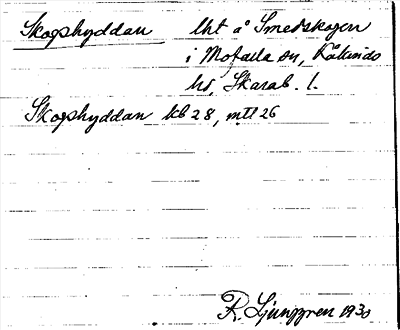 Skogshyddan lht å Smedskogen
i Mofalla sn, Kåkinds
hd, Skarab. l.
Skogshyddan kb 28, mtl 26
R. Ljunggren 1930